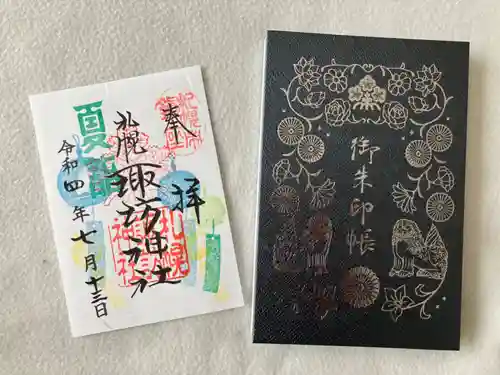 奉拝
札幌諏訪神社
令和四年七月十三日
夏詣
御朱印帳